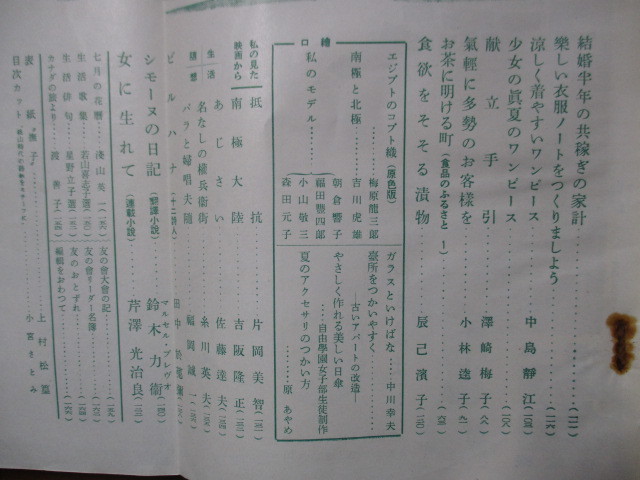 結婚半年の共稼ぎの家計
樂しい衣服ノートをつくりましよう
涼しく着やすいワンピース 中島靜江
少女の眞夏のワンピース
献立手引 澤崎梅子
氣輕に多勢のお客樣を 小林逸子
お茶に明ける町（食品のふるさと 1）
食欲をそそる漬物 辰己濱子
口繪
エジプトのコプト織（原色版） 梅原龍三郎
南極と北極 吉川虎雄
私のモデル
朝倉響子
福田豐四郎
小山敬三
森田元子
ガラスといけばな 中川幸夫
臺所をつかいやすく
―古いアパートの改造―
やさしく作れる美しい日傘
自由學園女子部生徒制作
夏のアクセサリのつかい方 原あやめ
私の見た映画から
抵抗 片岡美智
南極大陸 吉阪隆正
生活隨想
あじさい 佐藤達夫
名なしの權兵衞術 糸川英夫
バラと婦唱夫隨 福岡誠一
ビルハナ
シモーヌの日記（飜譯小説） マルセル・プレヴォ
鈴木力衞
女に生れて（連載小説） 芹澤光治良
七月の花暦 湊山英
生活歌集 若山喜志子選
生活俳句 星野立子選
カナダの旅より
友の會大會の記
友の會リーダー名簿
友のおとずれ
編輯をおわつて
表紙“撫子” 上村松篁
目次カット 小宮さとみ